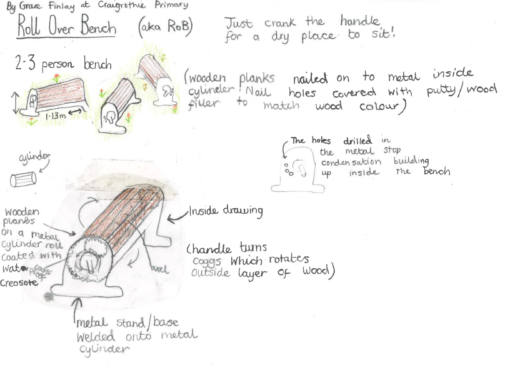 By Grace Finlay at Craigrothie Primary
Roll Over Bench (aka RoB)
Just crank the handle
for a dry place to sit!
2-3 person bench
(wooden planks nailed on to metal inside
cylinder! Nail holes covered with putty/wood
filler to match wood colour)
1.13m
The holes drilled in
the metal stop
condensation building
up inside the bench
cylinder
Wooden
planks
on a metal
cylinder roll
coated with
water
creosote
Inside drawing
(handle turns
coggs which rotates
outside layer of wood)
metal stand/base
welded onto metal
cylinder